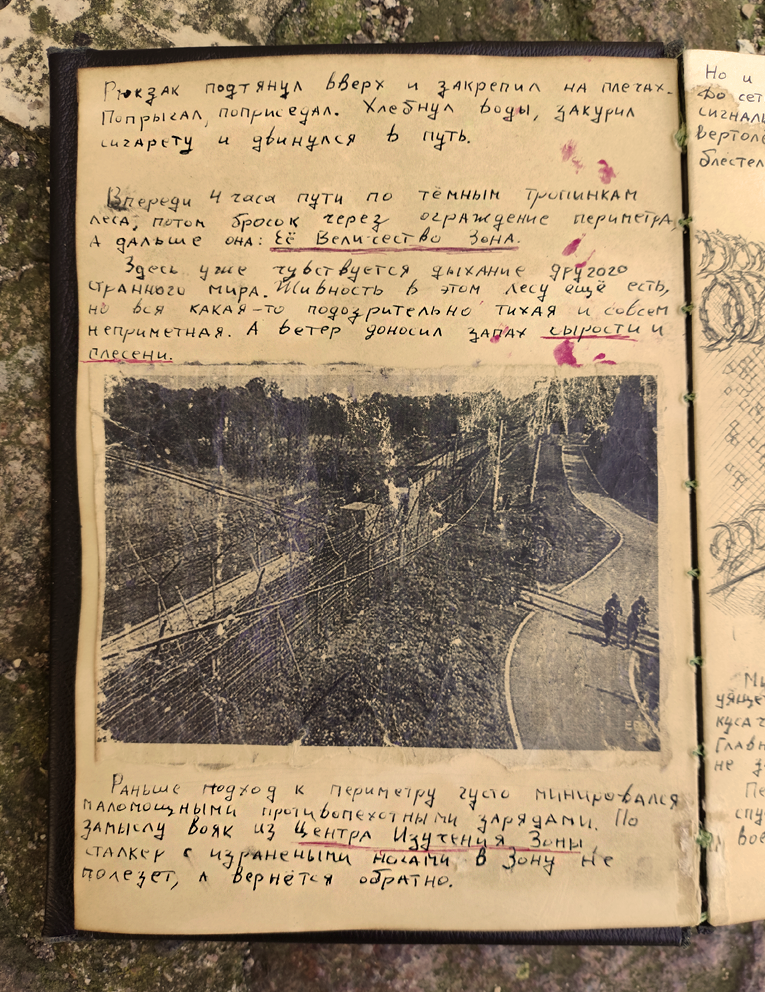 Рюкзак подтянул вверх и закрепил на плечах.
Попрыгал, поприседал. Хлебнул воды, закурил
сигарету и двинулся в путь.
Впереди 4 часа пути по тёмным тропинкам
леса, потом бросок через ограждение периметра.
А дальше она: Её Величество Зона.
Здесь уже чувствуется дыхание другого
странного мира. Живность в этом лесу ещё есть,
но вся какая-то подозрительно тихая и совсем
неприметная. А ветер доносил запах сырости и
плесени.
Раньше подход к периметру густо минировался
маломощными противопехотными зарядами. По
замыслу вояк из Центра Изучения Зоны,
сталкер с изранеными ногами в Зону не
полезет, а вернётся обратно.
Но и
сигналь
вертолё
блестел
кусач
Главн
не з
Пе
спу
вое